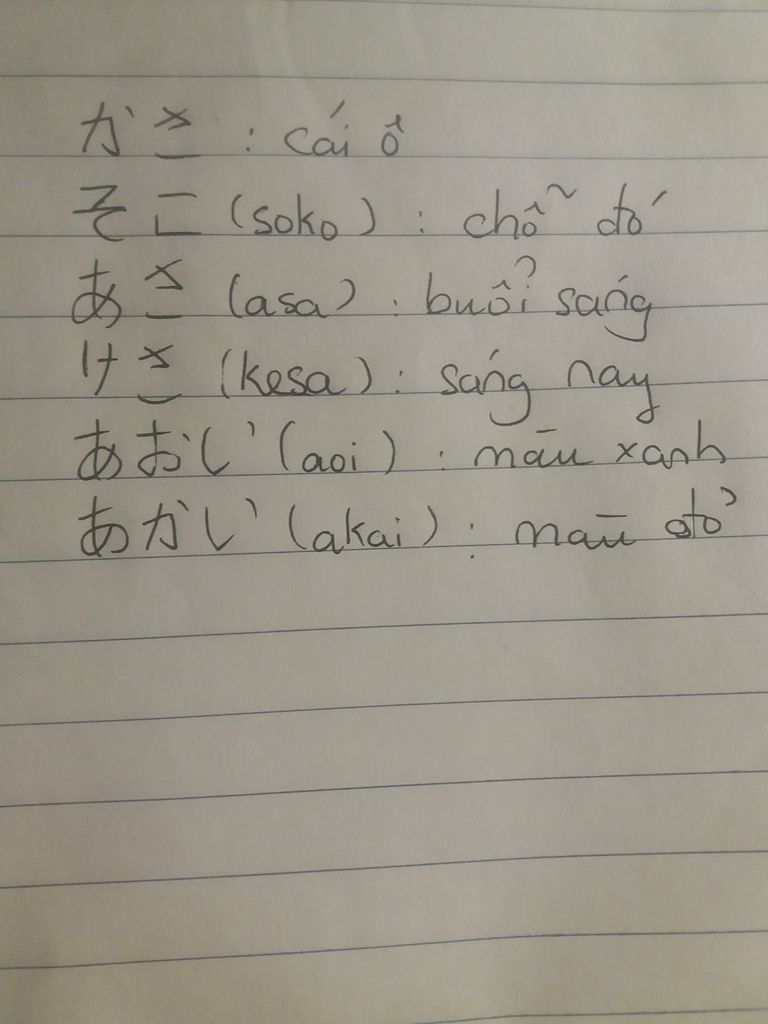 かさ : cái ô
そこ (soko) : chỗ đó
あさ (asa) : buổi sáng
けさ (kesa) : sáng nay
あおい (aoi) : màu xanh
あかい (akai) : màu đỏ